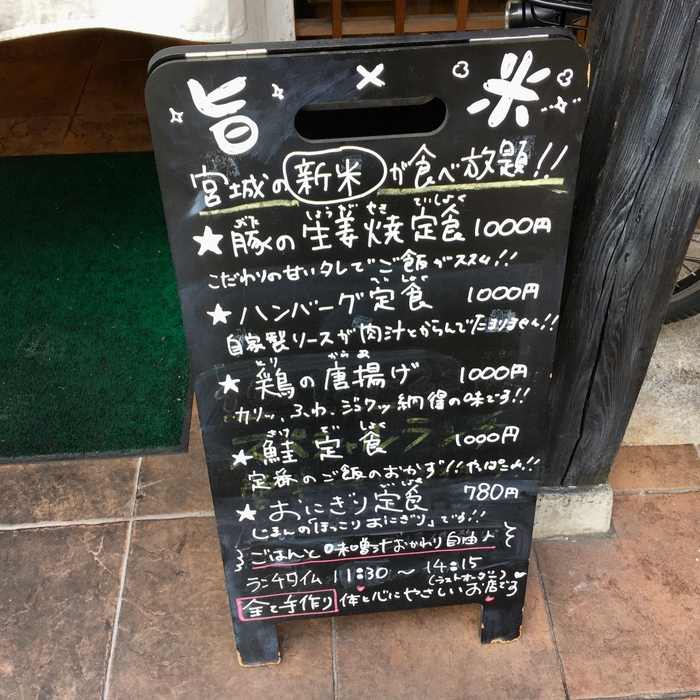 旨 × 米
宮城の新米が食べ放題!!
★豚の生姜焼定食 1000円
ぶた しょうが やき ていしょく
こだわりの甘いタレでご飯がススム!!
★ハンバーグ定食 1000円
ていしょく
自家製ソースが肉汁とからんでたまりません!!
★鶏の唐揚げ 1000円
とり からあ
カリッ、ふわ、ジュワッ納得の味です!!
★鮭定食 1000円
さけ てい しょく
定番のご飯のおかず!!やっぱこれ!!
★おにぎり定食 780円
ていしょく
じまんの「ほっこりおにぎり」です!!
ごはんと味噌汁おかわり自由♪
ランチタイム 11:30 〜 14:15
(ラストオーダー)
全て手作り 体と心にやさしいお店です